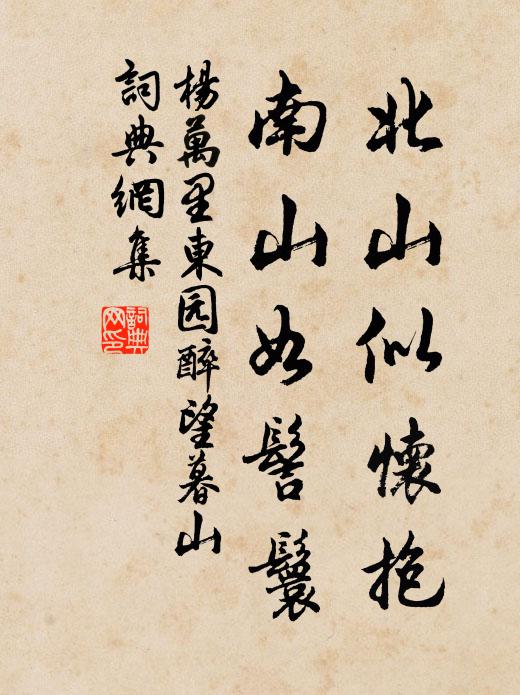 北山似懷抱
南山如髻鬟
楊萬里東园醉望暮山
詞典網集
詞典网印